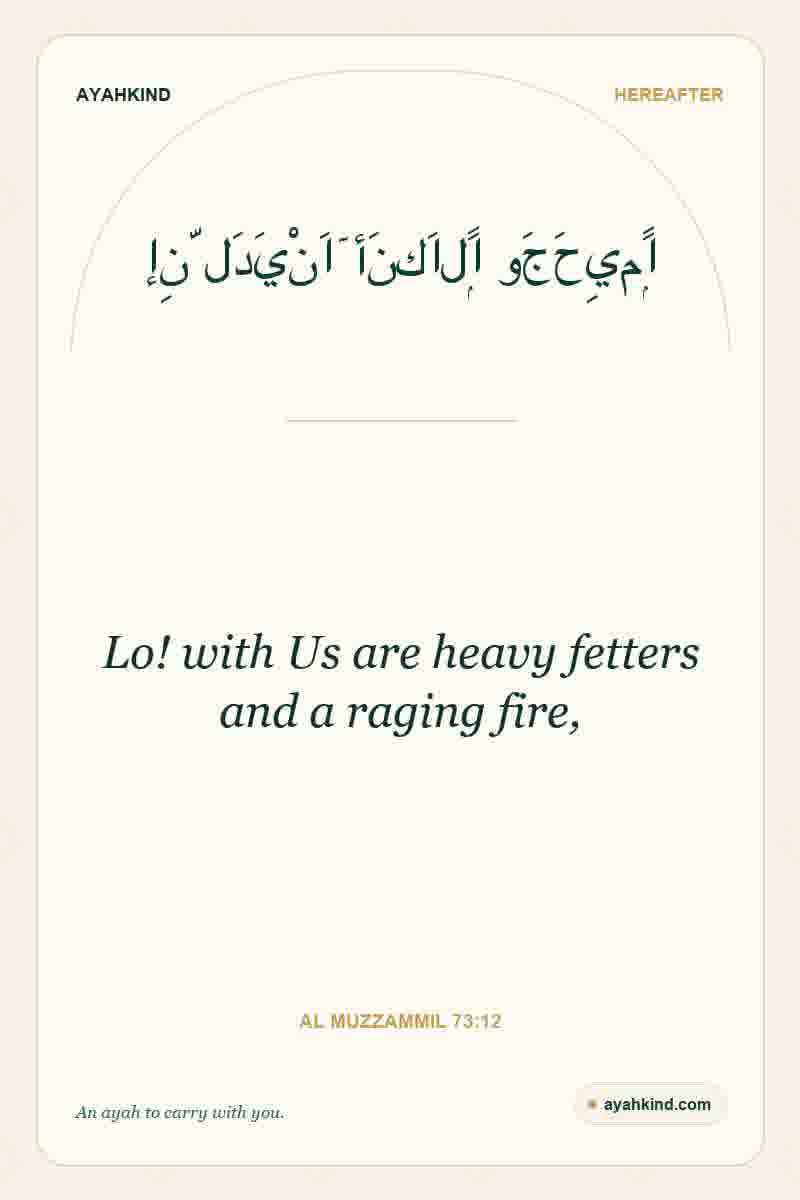 AYAHKIND
HEREAFTER
إِنَّ لَدَيْنَآ أَنكَالًۭا وَجَحِيمًۭا
Lo! with Us are heavy fetters
and a raging fire,
AL MUZZAMMIL 73:12
An ayah to carry with you.
ayahkind.com